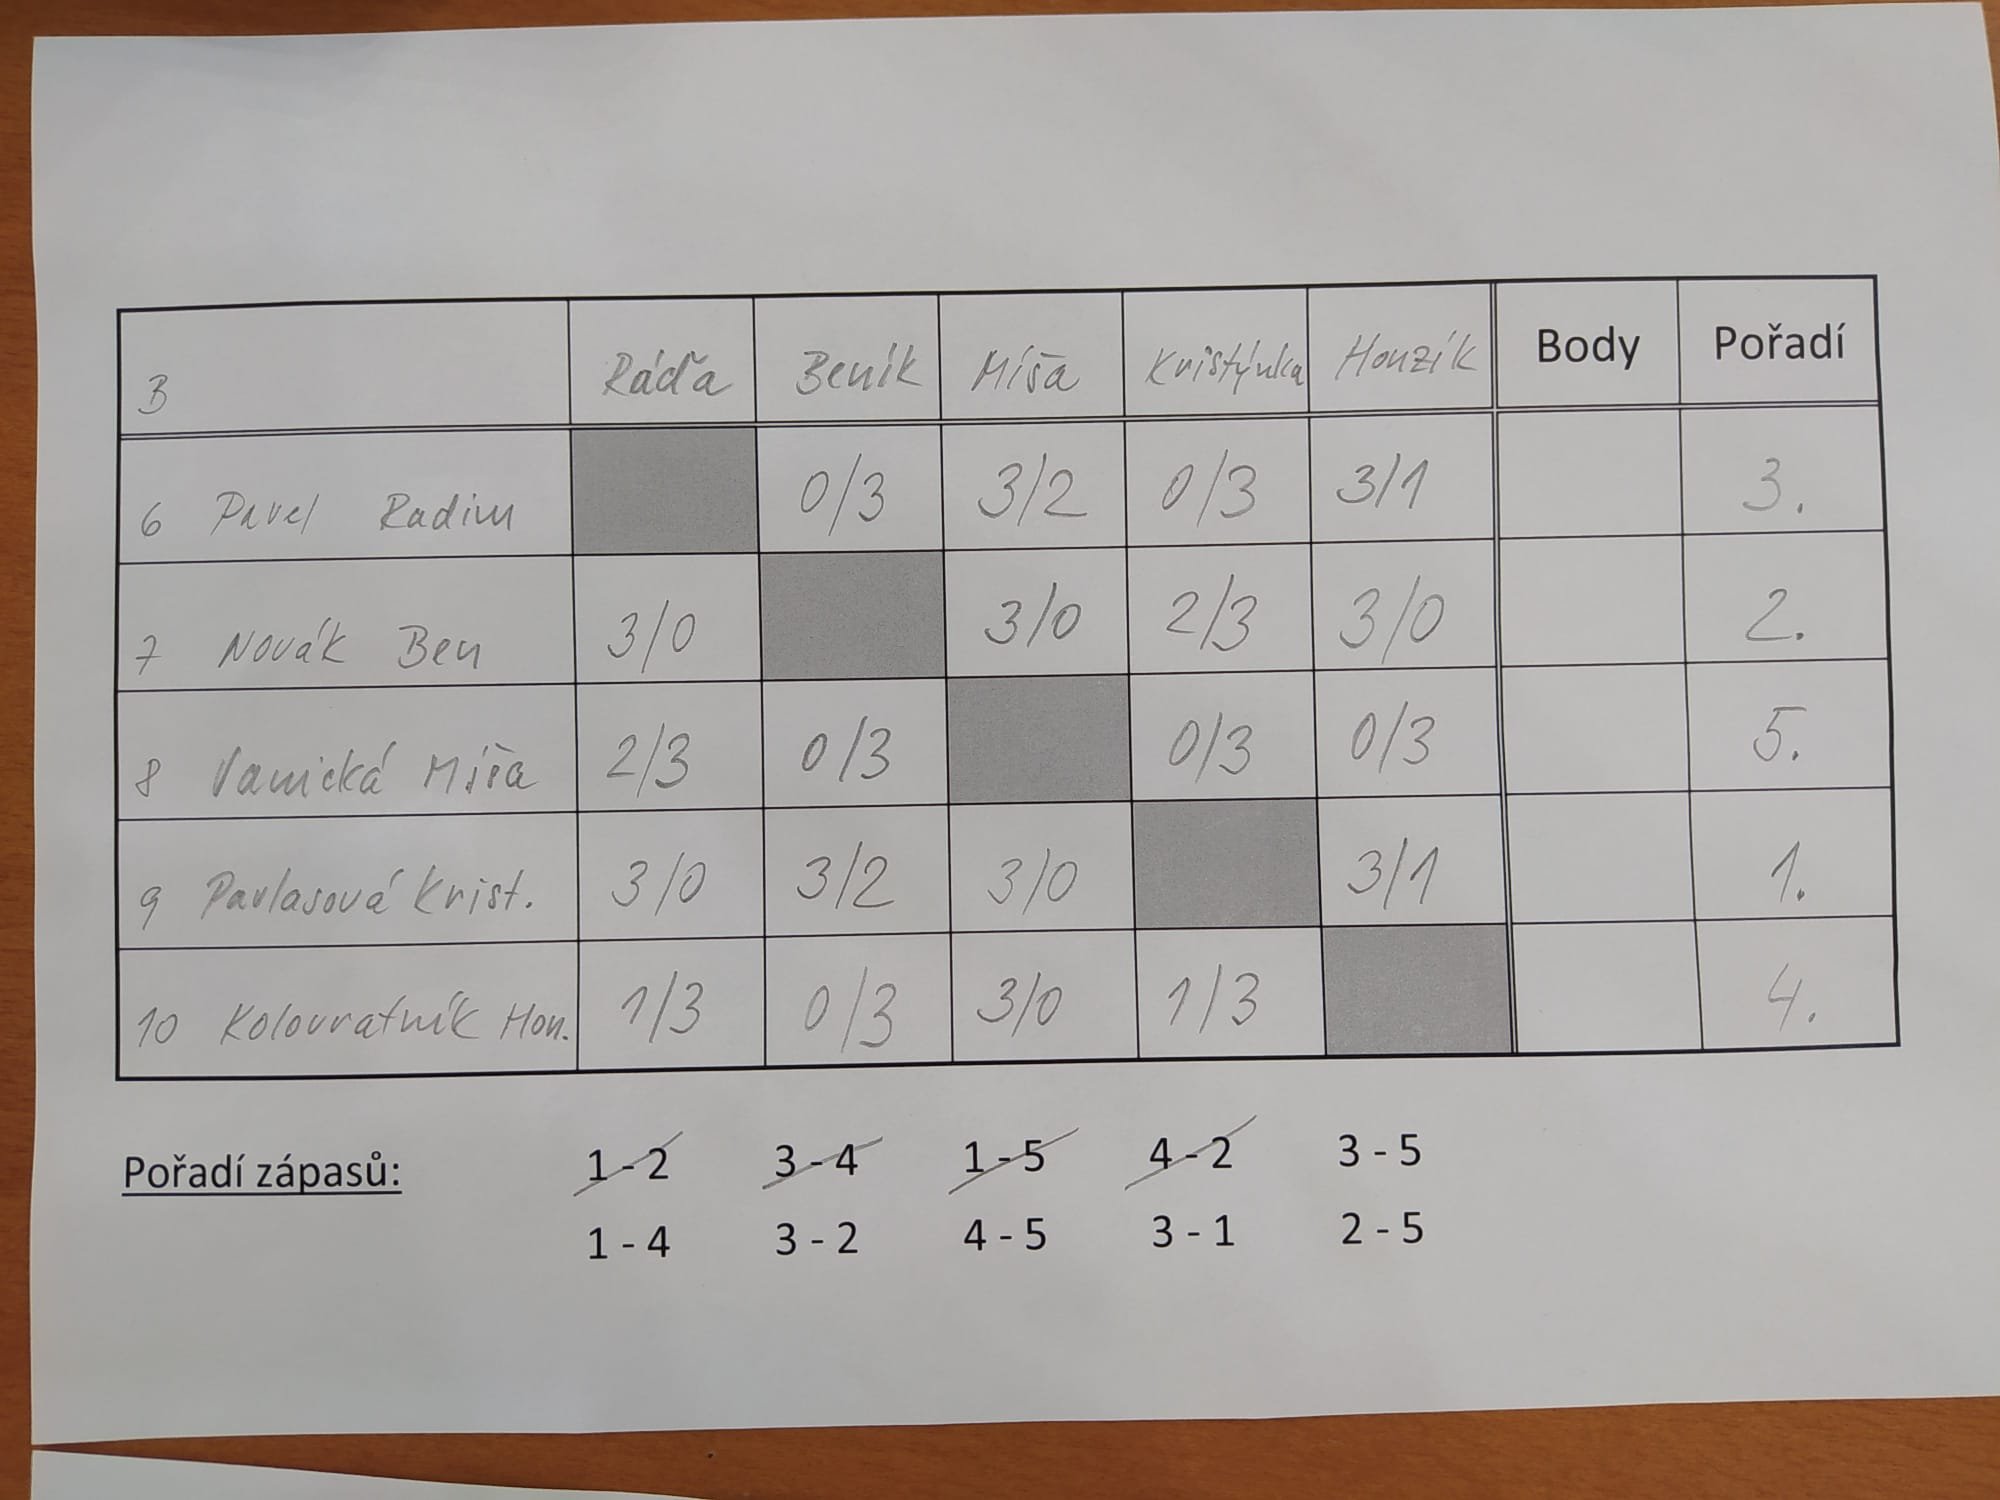 B Ráďa Beník Míša Kristýnka Honzík Body Pořadí
6 Pavel Radim 0/3 3/2 0/3 3/1 3.
7 Novák Ben 3/0 3/0 2/3 3/0 2.
8 Vanická Míša 2/3 0/3 0/3 0/3 5.
9 Pavlasová Krist. 3/0 3/2 3/0 3/1 1.
10 Kolovratník Hon. 1/3 0/3 3/0 1/3 4.
Pořadí zápasů: 1 - 2 3 - 4 1 - 5 4 - 2 3 - 5
1 - 4 3 - 2 4 - 5 3 - 1 2 - 5